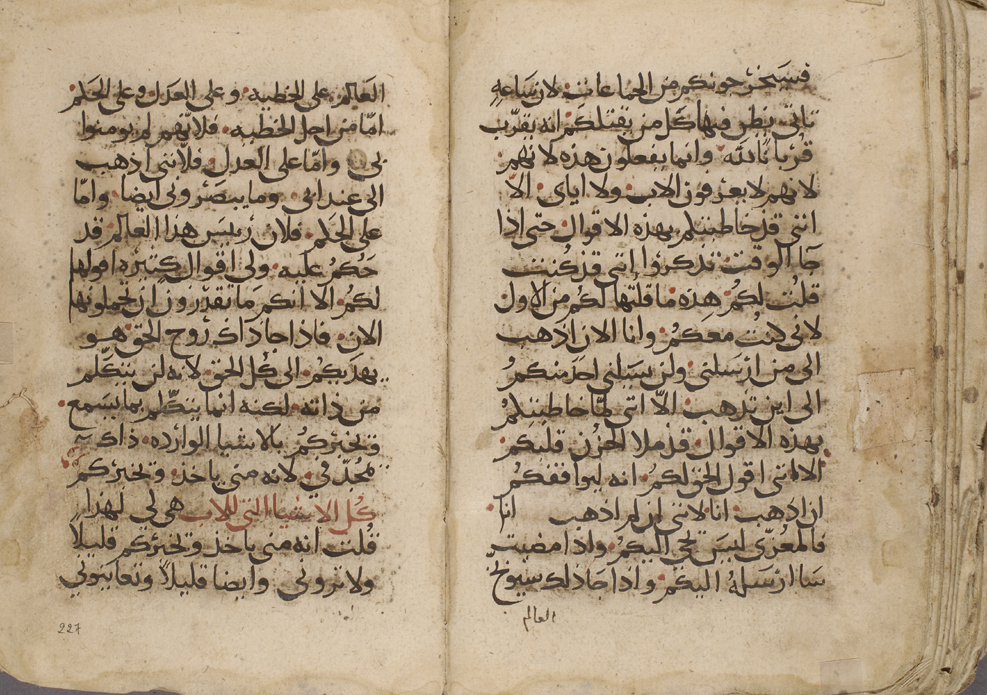 فسيخرجونكم من الجماعات لان ساعه
تاتي يظن فيها كل من يقتلكم انه يقرب
قربانا لله وانما يفعلون هذه لانهم
لانهم لا يعرفون الاب ولا اياي الا
انني قد خاطبتكم بهذه الاقوال حتى اذا
جا الوقت تذكروا انني قد كنت
قلت لكم هذه ما قلتها لكم من الاول
لاني كنت معكم وانا الان اذهب
الى من ارسلني ولن يسلني احد منكم
الى اين تذهب الا انني لما خاطبتكم
بهذه الاقوال قد ملا الحزن قلبكم
الا انني اقول الحق لكم انه ليوافقكم
ان اذهب انا لانني ان لم اذهب انا
فالمعزي ليس يجي اليكم واذا مضيت
سا ارسله اليكم واذا جا ذلك سيوبخ
العالم
العالم على الخطيه وعلى العدل وعلى الحكم
اما من اجل الخطيه فلانهم لم يومنوا
بي واما على العدل فلانني اذهب
الى عند ابي وما يبصروني ايضا واما
على الحكم فلان رييس هذا العالم قد
حكم عليه ولي اقوال كتيره اقولها
لكم الا انكم ما تقدرون ان تحملونها
الان فاذا جا ذاك روح الحق هو
يهديكم الى كل الحق لانه لن يتكلم
من ذاته لكنه انما يتكلم بما يسمع
وتخبركم بالاشيا الوارده ذاك
يمجدني لانه مني ياخذ وتخبركم
كل الاشيا التي للاب هي لي لهذا
قلت انه مني ياخذ وتخبركم قليلا
ولا تروني وايضا قليلا وتعاينوني
227